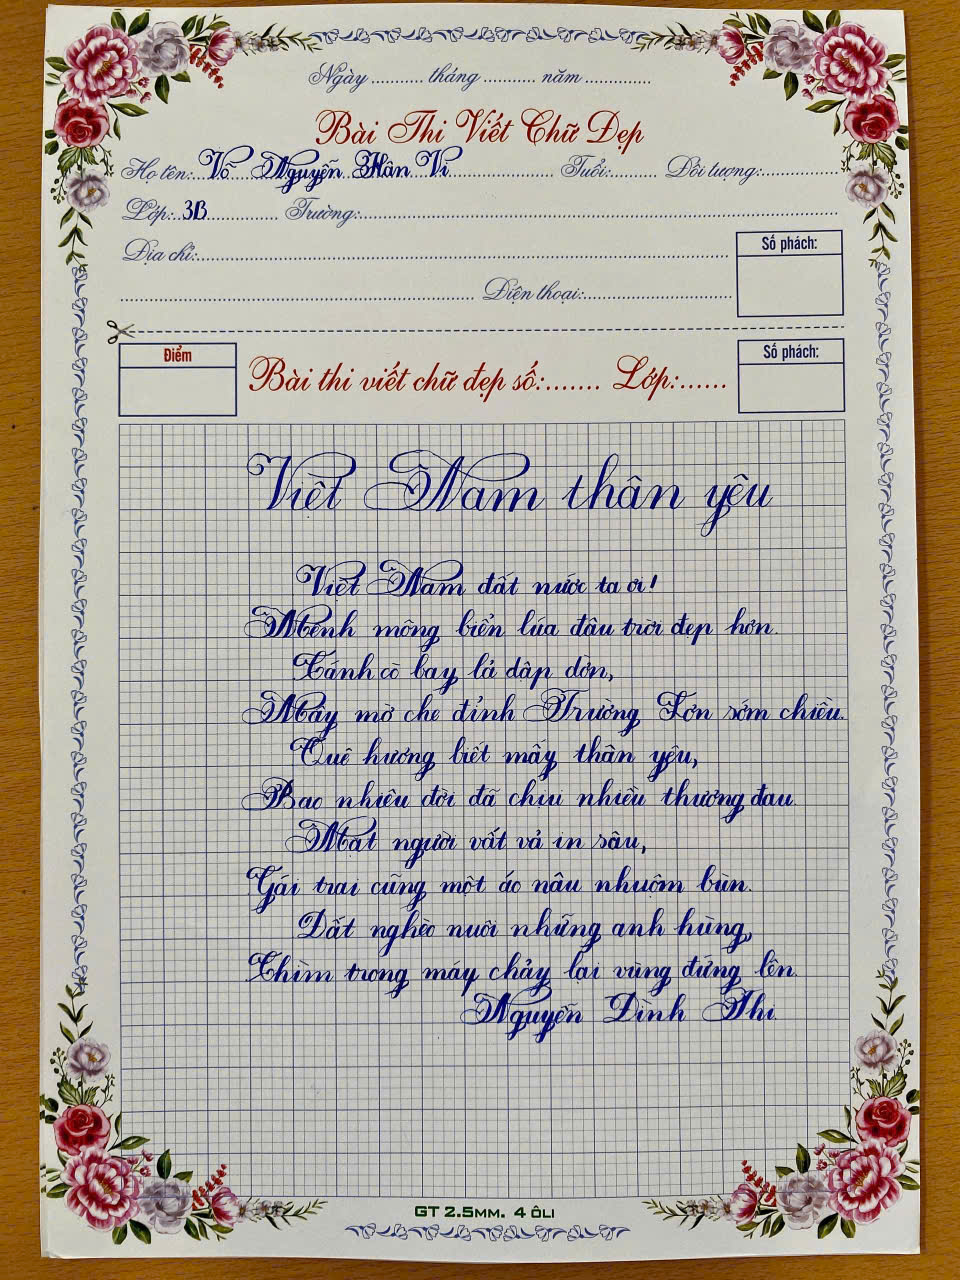 Ngày ........... tháng ........... năm .............
Bài Thi Viết Chữ Đẹp
Họ tên: Võ Nguyễn Hân Vi Tuổi:......... Đối tượng:...............
Lớp: 3B Trường:...............
Địa chỉ:...............
Số phách:
............... Điện thoại:...............
Điểm
Bài thi viết chữ đẹp số:....... Lớp:......
Số phách:
Việt Nam thân yêu
Việt Nam đất nước ta ơi!
Mênh mông biển lúa đâu trời đẹp hơn.
Cánh cò bay lả dập dờn,
Mây mờ che đỉnh Trường Sơn sớm chiều.
Quê hương biết mấy thân yêu,
Bao nhiêu đời đã chịu nhiều thương đau.
Mặt người vất vả in sâu,
Gái trai cũng một áo nâu nhuộm bùn.
Đất nghèo nuôi những anh hùng,
Chìm trong máy chảy lại vùng đứng lên.
Nguyễn Đình Thi
GT 2.5MM. 4 ÔLI